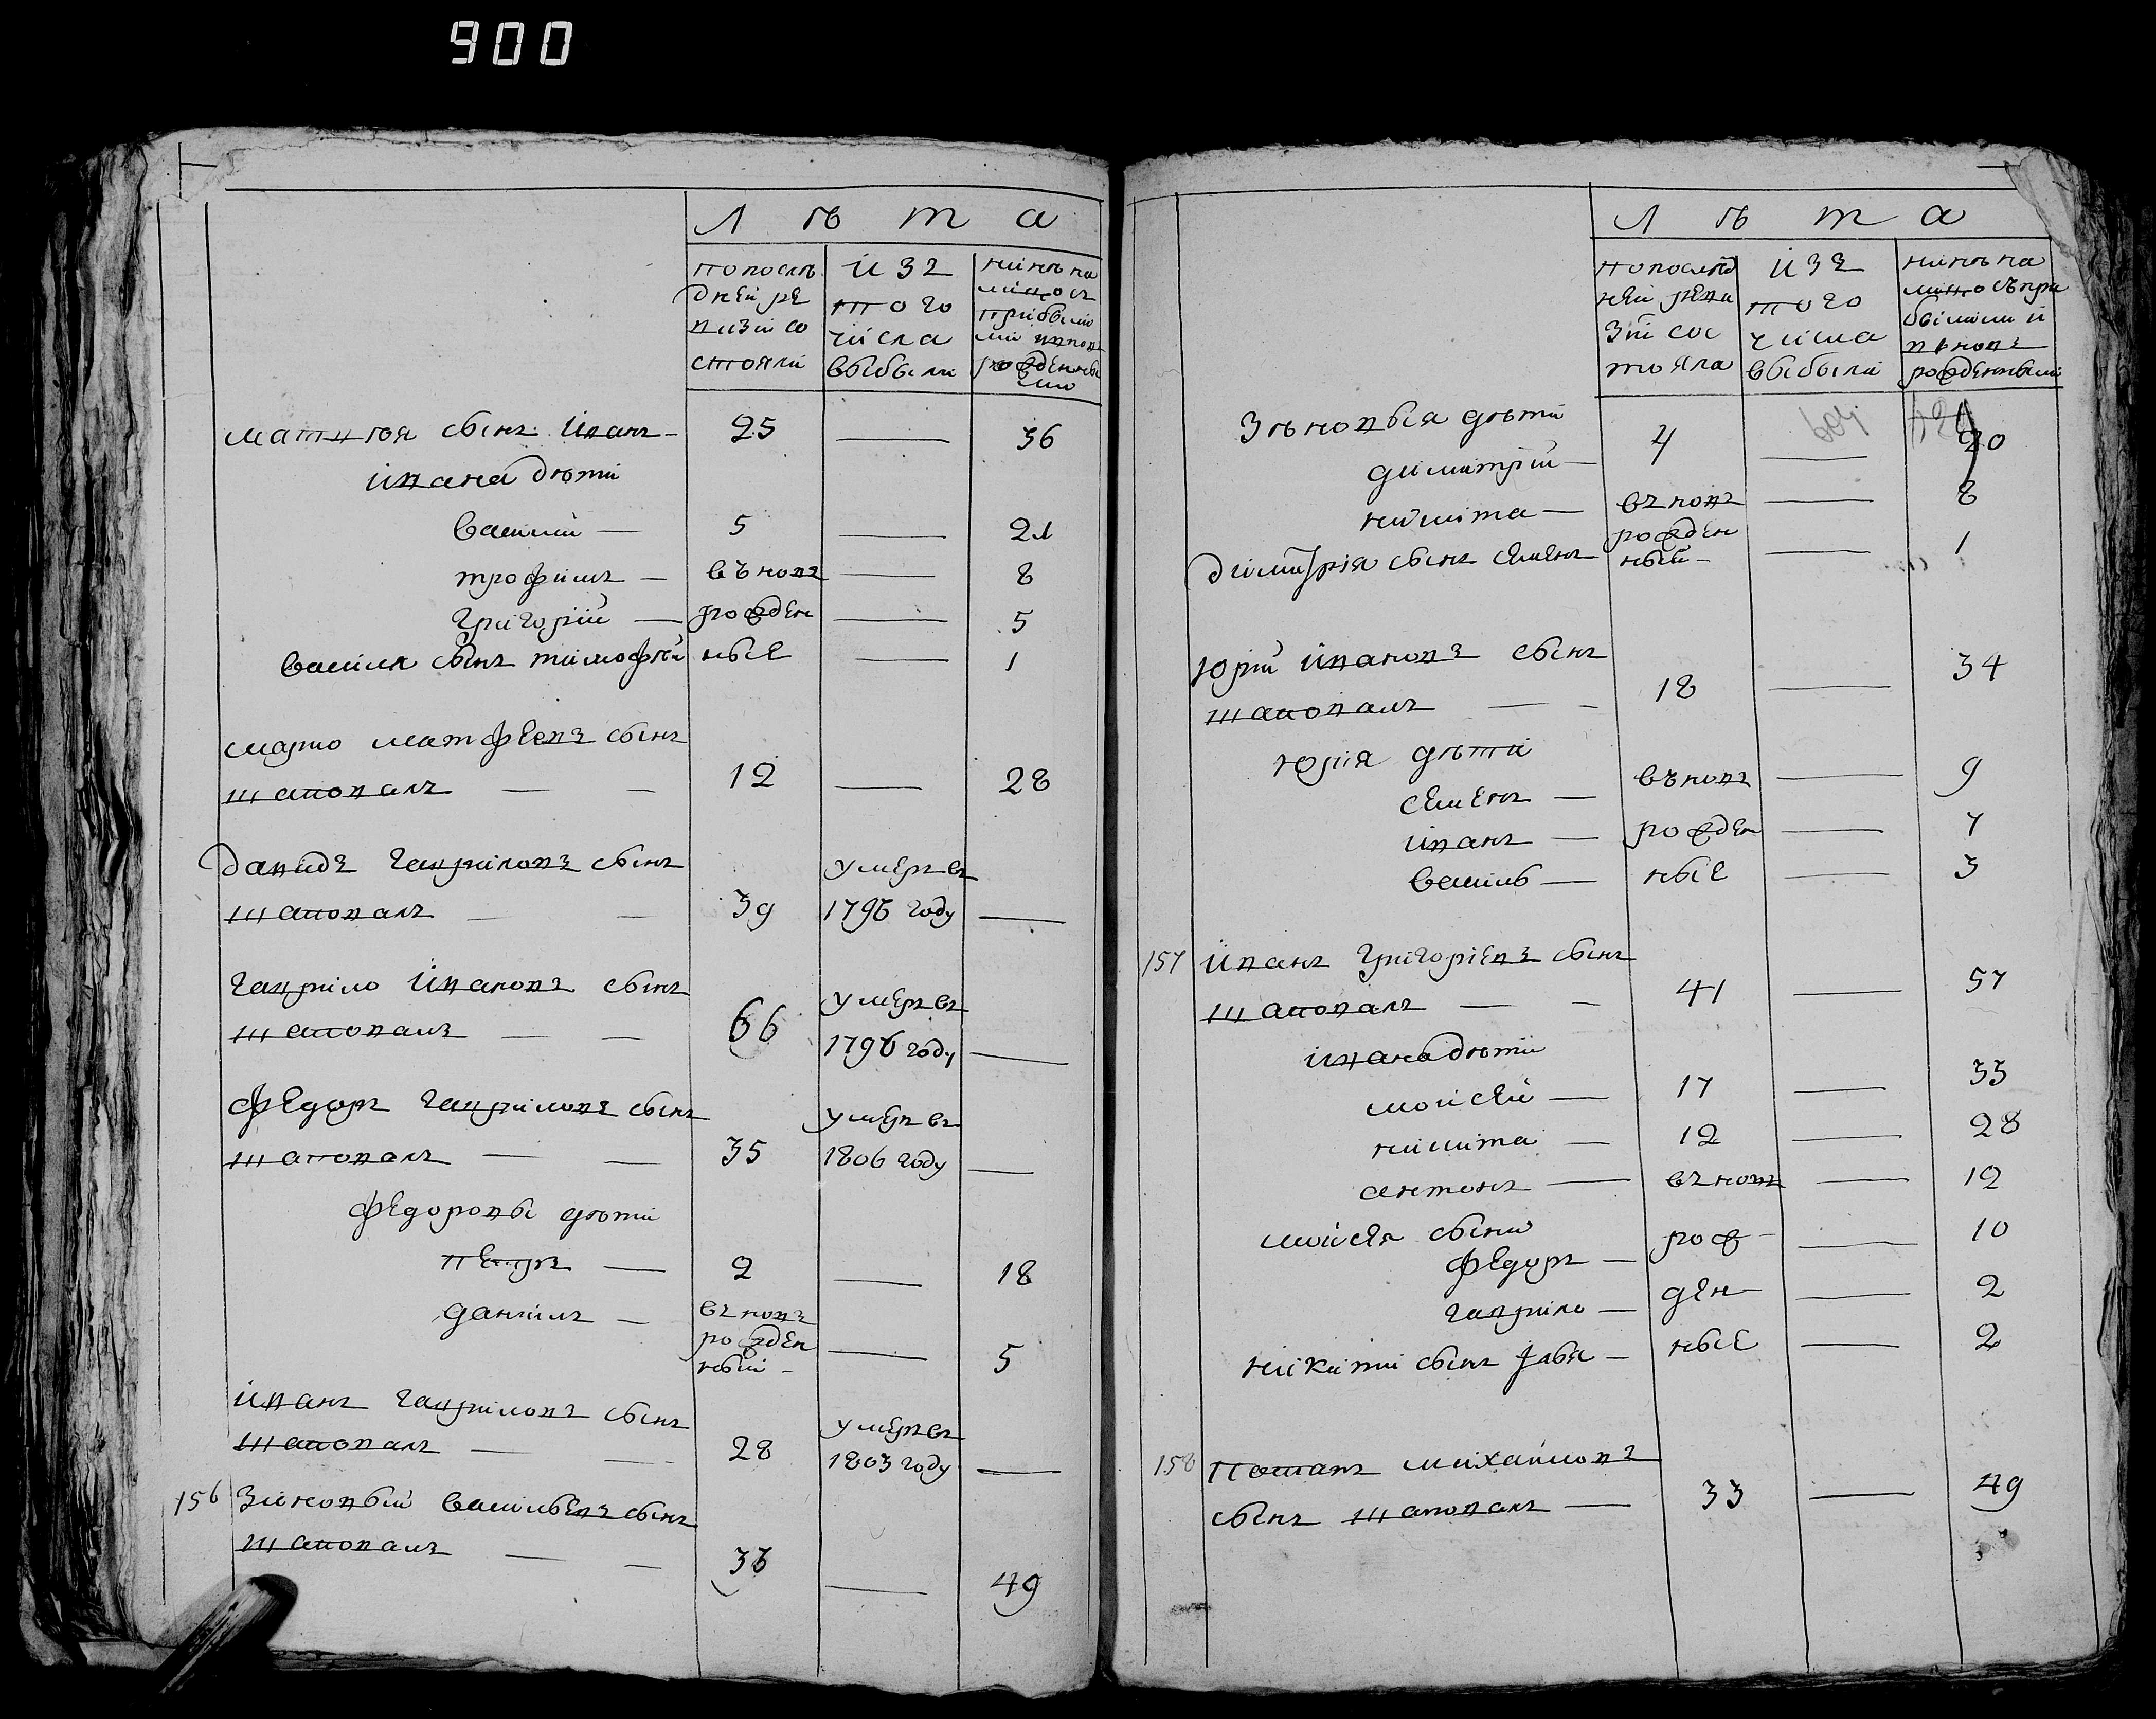 900
Л ѣ т а
по послѣ
дней ре
визіи со
стояли
изъ
того
числа
выбыли
нынѣ на
лицо съ
прибылы
ми и вновь
рожденны
ми
Матвѣя сынъ Иванъ – 25 — 36
Ивана дѣти
Василий — 5 — 21
Трофимъ — въ новъ — 8
Григорій — рожден — 5
Василия сынъ Тимофѣй ные — 1
Марко Матфеевъ сынъ
Шаповалъ — — 12 — 28
Давидъ Гавриловъ сынъ
Шаповалъ — — 39 умеръ въ 1796 году —
Гаврило Ивановъ сынъ
Шаповалъ — — 66 умеръ въ 1796 году —
Федоръ Гавриловъ сынъ
Шаповалъ — — 35 умеръ въ 1806 году —
Федоровы дѣти
Петръ — 2 — 18
Данилъ — въ новъ рожден ный – — 5
Иванъ Гавриловъ сынъ
Шаповалъ — — 28 умеръ въ 1803 году —
156 Зѣновый Васильевъ сынъ
Шаповалъ — — 33 — 49
Л ѣ т а
по послѣд
ней реви
зіи сос
тояла
изъ
того
числа
выбыли
нынѣ на
лицо съ при
былыми и
вновь
рожденными
604
Зѣновыя дѣти
Димитрій — 4 — 20
Никита — въ новъ — 8
рожден
Димитрія сынъ Семенъ ный – — 1
Юрій Ивановъ сынъ
Шаповалъ — – 18 — 34
Юрія дѣти
Семенъ — въ новъ — 9
Иванъ — рожден — 7
Василь — ные — 3
157 Иванъ Григоріевъ сынъ
Шаповалъ — – 41 — 57
Ивана дѣти
Мойсей — 17 — 33
Никита — 12 — 28
Антонъ — въ новъ — 12
Мойсея сыны
Федоръ — рож — 10
Гаврило — ден — 2
Никиты сынъ — ные — 2
158 Потапъ Михайловъ
сынъ Шаповалъ — 33 — 49